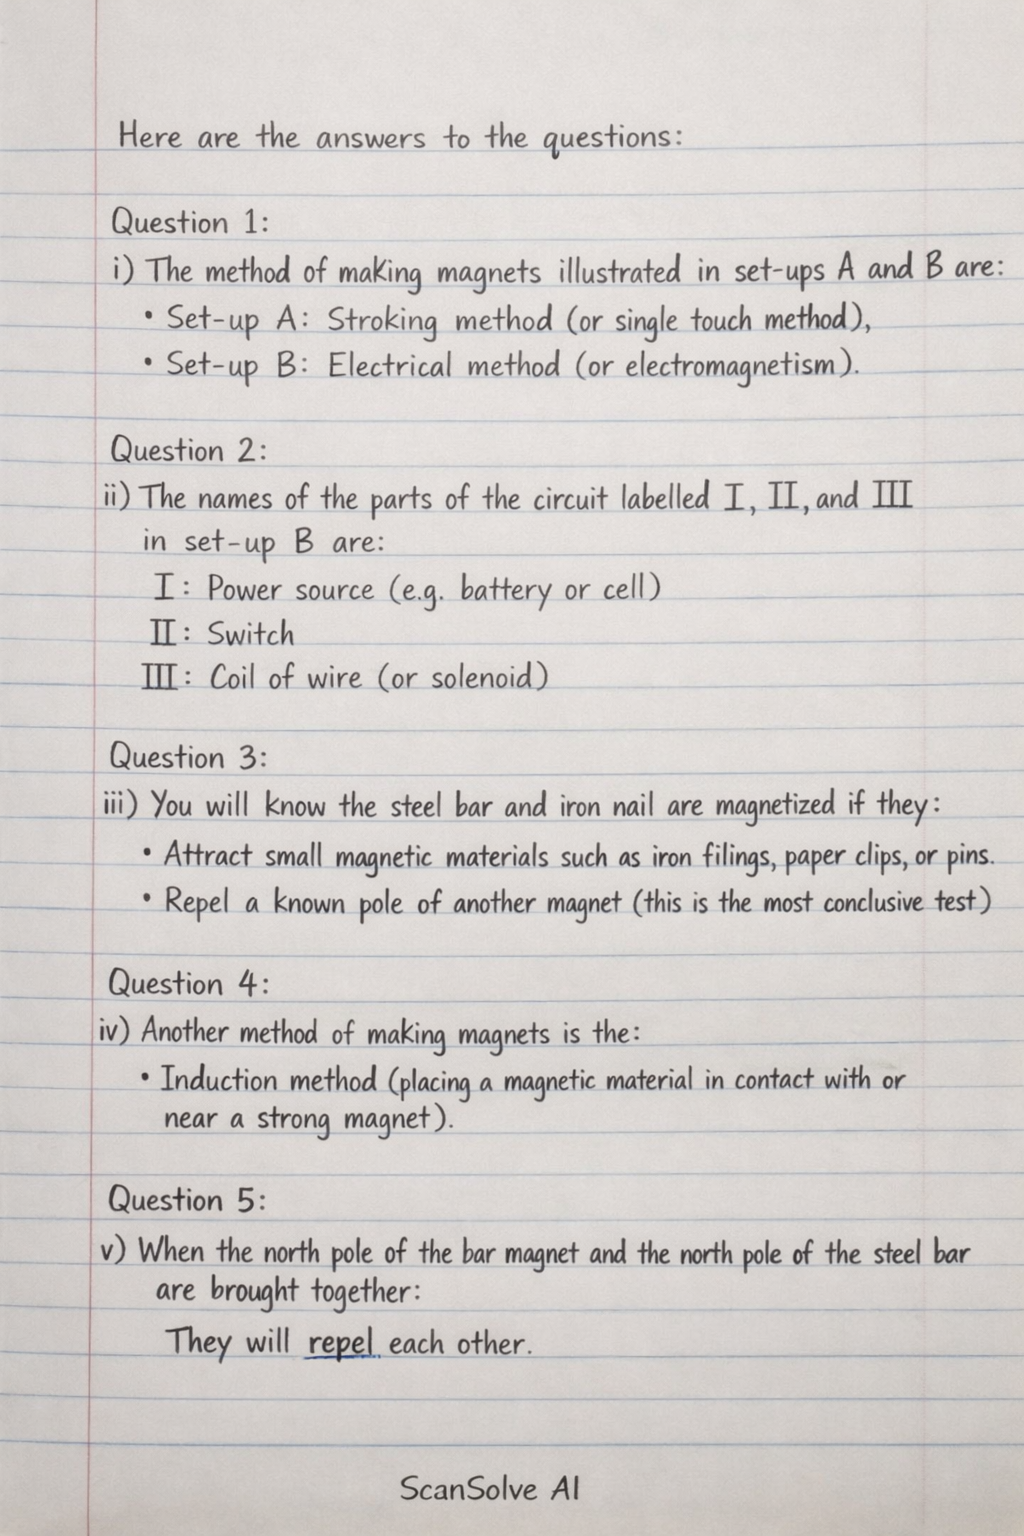 Here are the answers to the questions:
Question 1:
i) The method of making magnets illustrated in set-ups A and B are:
• Set-up A: Stroking method (or single touch method),
• Set-up B: Electrical method (or electromagnetism).
Question 2:
ii) The names of the parts of the circuit labelled I, II, and III
in set-up B are:
I: Power source (e.g. battery or cell)
II: Switch
III: Coil of wire (or solenoid)
Question 3:
iii) You will know the steel bar and iron nail are magnetized if they:
• Attract small magnetic materials such as iron filings, paper clips, or pins.
• Repel a known pole of another magnet (this is the most conclusive test)
Question 4:
iv) Another method of making magnets is the:
• Induction method (placing a magnetic material in contact with or
near a strong magnet).
Question 5:
v) When the north pole of the bar magnet and the north pole of the steel bar
are brought together:
They will repel each other.
ScanSolve AI